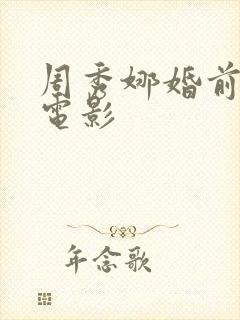 周秀娜婚前
電影
年念歌